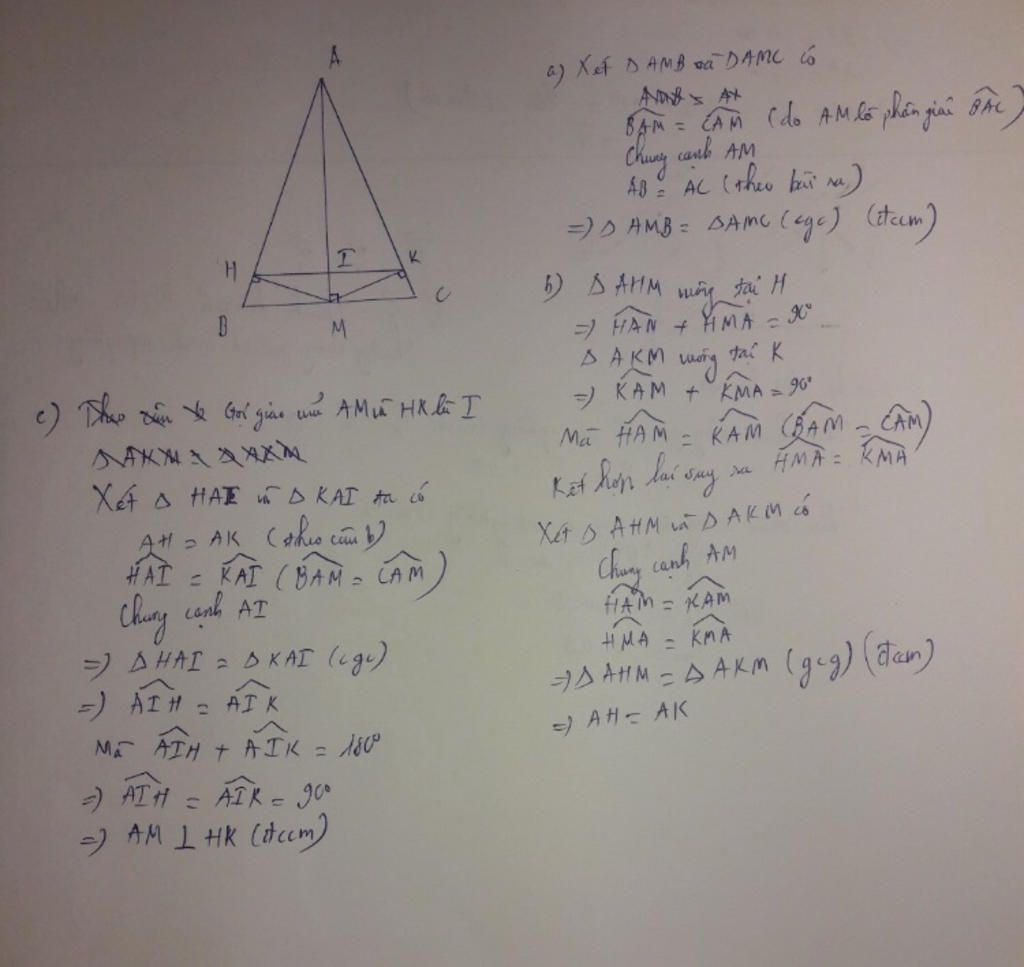 A
H
I
K
B
M
C
a) Xét Δ AMB và Δ AMC có
BAM = CAM (do AM là phân giác BAC)
Chung cạnh AM
AB = AC (theo bài ra)
=) Δ AMB = Δ AMC (cgc) (đccm)
b) Δ AHM vuông tại H
=) HAM + HMA = 90°
Δ AKM vuông tại K
=) KAM + KMA = 90°
Mà HAM = KAM (BAM = CAM)
Kết hợp lại suy ra HMA = KMA
Xét Δ AHM và Δ AKM có
Chung cạnh AM
HAM = KAM
HMA = KMA
=) Δ AHM = Δ AKM (gcg) (đccm)
=) AH = AK
c) Gọi giao của AM và HK là I
Xét Δ HAI và Δ KAI ta có
AH = AK (theo câu b)
HAI = KAI (BAM = CAM)
Chung cạnh AI
=) Δ HAI = Δ KAI (cgc)
=) AIH = AIK
Mà AIH + AIK = 180°
=) AIH = AIK = 90°
=) AM ⊥ HK (đccm)